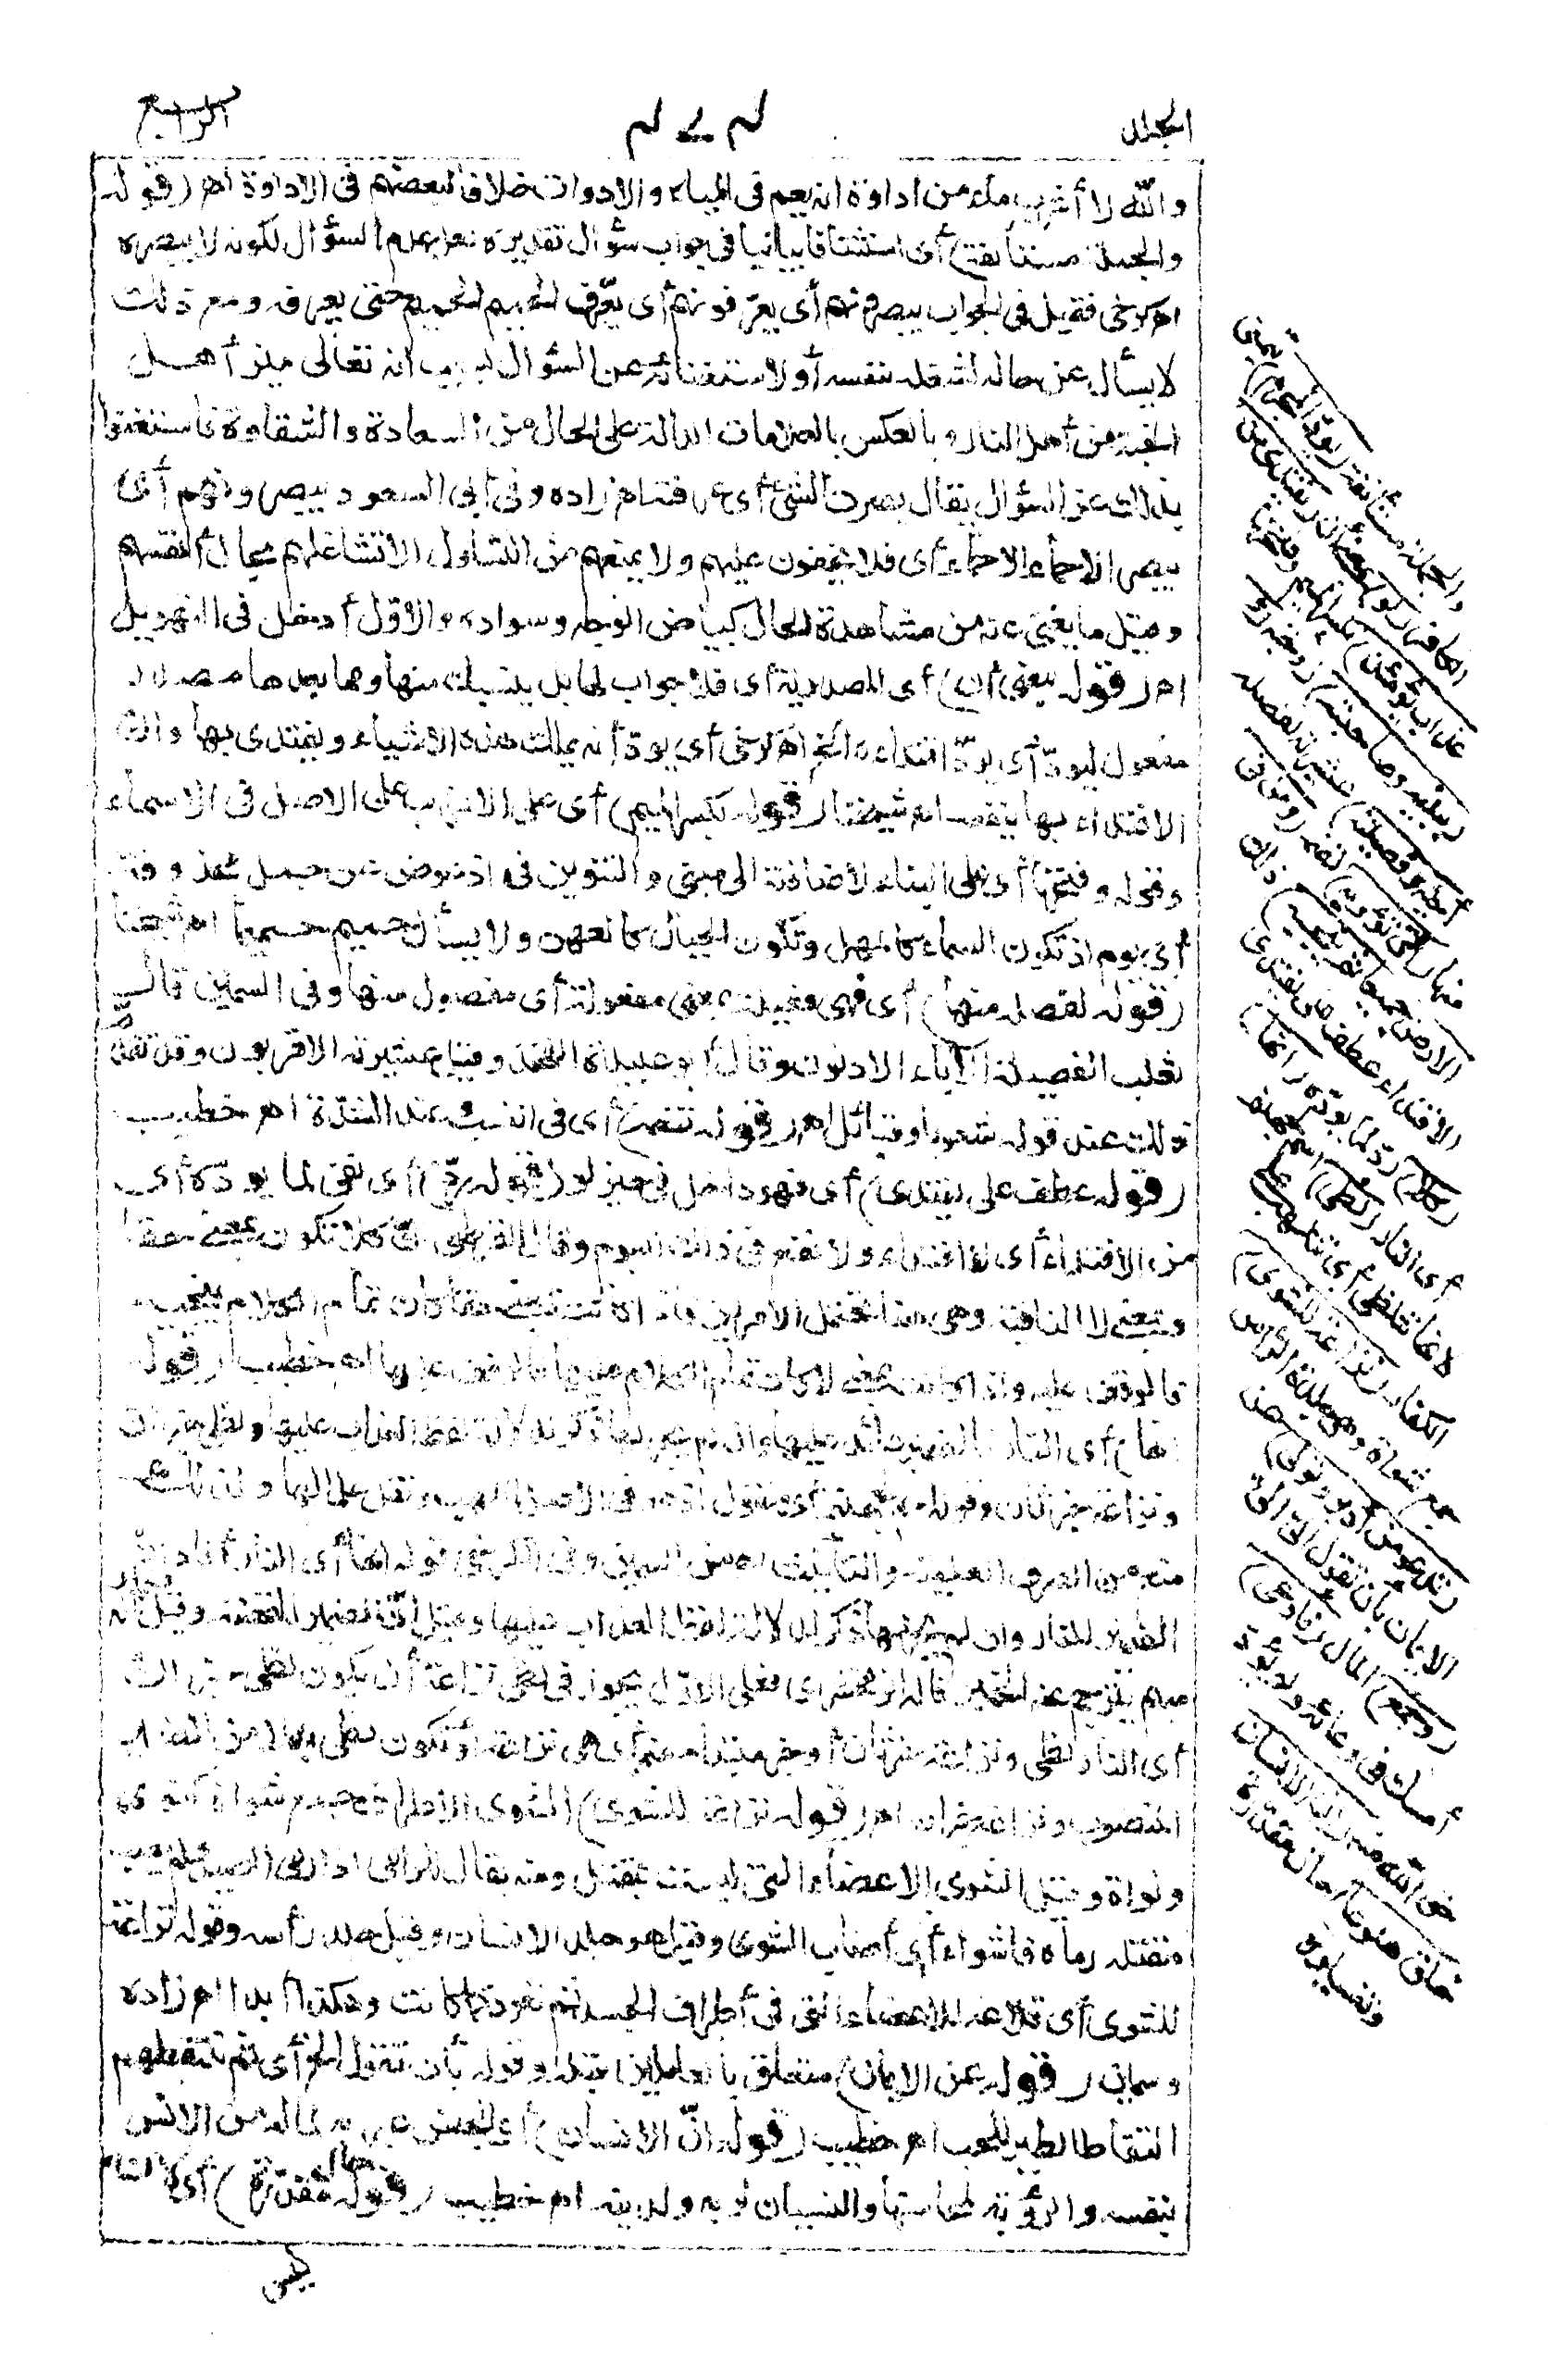 المجلد
الرابع
والله لا أشرب ماء من اداوة انه يعم في المياه والادوات خلافا لبعضهم في الاداوة اهـ (قوله
والجملة مستأنفة) أي استئنافا بيانيا في جواب سؤال تقديره لعل عدم السؤال لكونه لا يبصره
اهـ كرخي فقيل في الجواب يبصرونهم أي يعرّفونهم أي يعرّف الحميم الحميم حتى يعرفه ومع ذلك
لا يسأل عن حاله لشغله بنفسه أو لاستغنائه عن السؤال بسبب انه تعالى ميز أهل
الجنة من أهل النار وبالعكس بالعلامات الدالة على الحال من السعادة والشقاوة فاستغنوا
بذلك عن السؤال يقال بصرت الشئ أي عرفته اهـ زاده وفي أبي السعود يبصرونهم أي
يبصر الاحماء الاحماء أي فلا يخفون عليهم ولا يمنعهم من التساؤل الا تشاغلهم بحال أنفسهم
وقيل ما يغني عنه من مشاهدة الحال كبياض الوجه وسواده والاوّل أدخل في التهويل
اهـ (قوله بمعنى أن) أي المصدرية أي فلا جواب لها بل ينسبك منها ومما بعدها مصدر
مفعول ليودّ أي يودّ افتداءه الخ اهـ كرخي أي يودّ أنه يملك هذه الاشياء ويفتدى بها وان
الافتداء بها ينفعه اهـ شيخنا (قوله بكسر الميم) أي على الاعراب على الاصل في الاسماء
وقوله وفتحها أي على البناء لاضافته الى مبني والتنوين في اذ عوض عن جمل محذوفة
أي يوم اذ تكون السماء كالمهل وتكون الجبال كالعهن ولا يسأل حميم حميما اهـ شيخنا
(قوله لفصله منها) أي فهي فعيلة بمعنى مفعولة أي مفصول منها وفي السمين قال
ثعلب الفصيلة الآباء الادنون وقال أبو عبيدة الفخذ وقيل عشيرته الاقربون وقد تقدّم
ذلك عند قوله شعوبا وقبائل اهـ (قوله تضمه) أي في النسب وعند الشدّة اهـ خطيب
(قوله عطف على يفتدى) أي فهو داخل في حيز لو (قوله ردّ) أي نفي لما يودّه أي
من الافتداء أي لا افتداء ولا ينفع في ذلك اليوم وقال القرطبي كلا تكون بمعنى حقا
وبمعنى لا النافية وهي هنا تحتمل الامرين فاذا كانت بمعنى حقا كان تمام الكلام ينجيه
فالوقف عليه واذا كانت بمعنى لا كان تمام الكلام عليها فالوقف عليها اهـ خطيب (قوله
انها) أي النار فالضمير عائد عليها وان لم يجر لها ذكر لدلالة لفظ العذاب عليها ولظى خبر ان
ونزاعة خبر ثان
منع من الصرف العلمية والتأنيث اهـ من السمين وفي الكرخي قوله انها أي النار
الضمير للنار وان لم يجر لها ذكر لدلالة لفظ العذاب عليها وقيل انّه ضمير القصة وقيل انه ضمير
مبهم يترجم عنه الخبر قاله الزمخشري فعلى الاوّل يجوز في لظى نزاعة أن يكون لظى خبر انّ
أي النار لظى ونزاعة خبر ثان أو خبر مبتدأ مضمر أي هي نزاعة أو تكون لظى بدلا من الضمير
المنصوب ونزاعة خبر ان اهـ (قوله نزاعة للشوى) الشوى الاطراف جمع شواة كنوى
ونواة وقيل الشوى الاعضاء التي ليست بمقتل ومنه يقال للرامي اذا رمى الصيد فلم يصب
مقتله رماه فأشواه أي أصاب الشوى وقيل هو جلد الانسان وقيل جلد رأسه وقوله نزاعة
للشوى أي قلاعة للاعضاء التي في أطراف الجسد ثم تعود كما كانت وهكذا أبدا اهـ زاده
وسمين (قوله عن الايمان) متعلق بالعاملين قبله وقوله بأن تقول الخ أي ثم تلتقطهم
التقاط الطير للحب اهـ خطيب (قوله انّ الانسان) أي الجنس عبر به لما له من الانس
بنفسه والرؤية لمحاسنها والنسيان لربه ولدينه اهـ خطيب (قوله حال مقدرة) أي
والجملة مستأنفة (يودّ المجرم) يتمنى
الكافر (لو) بمعنى أن (يفتدي من
عذاب يومئذ) بكسر الميم وفتحها
(ببنيه وصاحبته) زوجته (وأخيه
وفصيلته) عشيرته لفصله
منها (التي تؤويه) تضمه (ومن في
الارض جميعا ثم ينجيه) ذلك
الافتداء عطف على يفتدى
(كلا) ردّ لما يودّه (انها)
أي النار (لظى) اسم لجهنم
لانها تتلظى أي تتلهب على
الكفار (نزاعة للشوى)
جمع شواة وهي جلدة الرأس
(تدعو من أدبر وتولى) عن
الايمان بأن تقول اليّ اليّ
(وجمع) المال (فأوعى)
أمسكه في وعائه ولم يؤدّ
حق الله منه (ان الانسان
خلق هلوعا) حال مقدّرة
وتفسيره